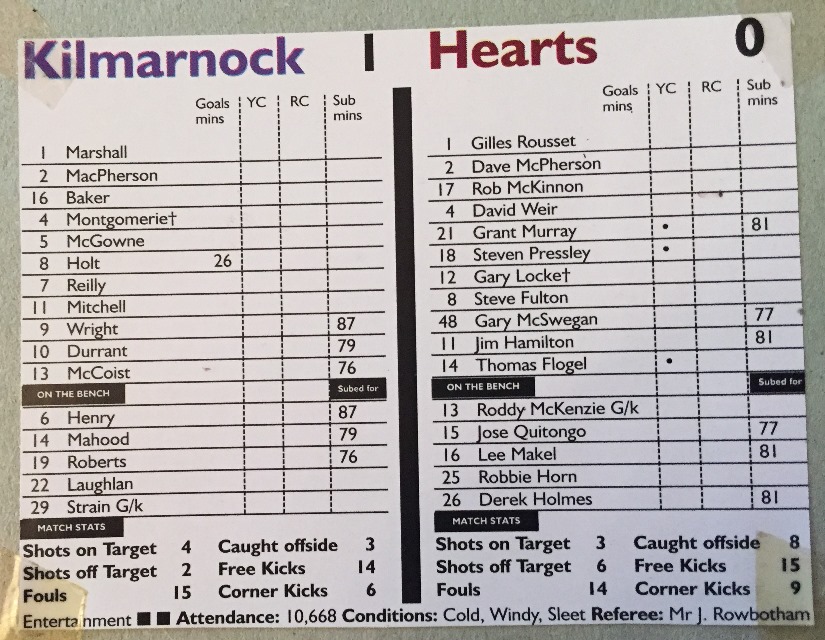 Kilmarnock 1 Hearts 0
Goals mins YC RC Sub mins
1 Marshall
2 MacPherson
16 Baker
4 Montgomerie†
5 McGowne
8 Holt 26
7 Reilly
11 Mitchell
9 Wright 87
10 Durrant 79
13 McCoist 76
ON THE BENCH Subed for
6 Henry 87
14 Mahood 79
19 Roberts 76
22 Laughlan
29 Strain G/k
MATCH STATS
Shots on Target 4 Caught offside 3
Shots off Target 2 Free Kicks 14
Fouls 15 Corner Kicks 6
Goals mins YC RC Sub mins
1 Gilles Rousset
2 Dave McPherson
17 Rob McKinnon
4 David Weir
21 Grant Murray • 81
18 Steven Pressley •
12 Gary Locke†
8 Steve Fulton
48 Gary McSwegan 77
11 Jim Hamilton 81
14 Thomas Flogel •
ON THE BENCH Subed for
13 Roddy McKenzie G/k
15 Jose Quitongo 77
16 Lee Makel 81
25 Robbie Horn
26 Derek Holmes 81
MATCH STATS
Shots on Target 3 Caught offside 8
Shots off Target 6 Free Kicks 15
Fouls 14 Corner Kicks 9
Entertainment ■ ■ Attendance: 10,668 Conditions: Cold, Windy, Sleet Referee: Mr J. Rowbotham